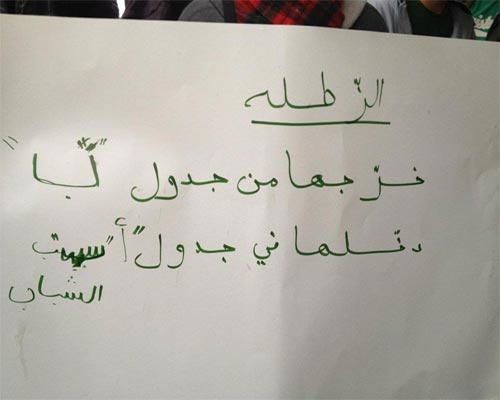 الزّطله
خرّجها من جدول "ب"
دخلها في جدول "أ"
الشباب